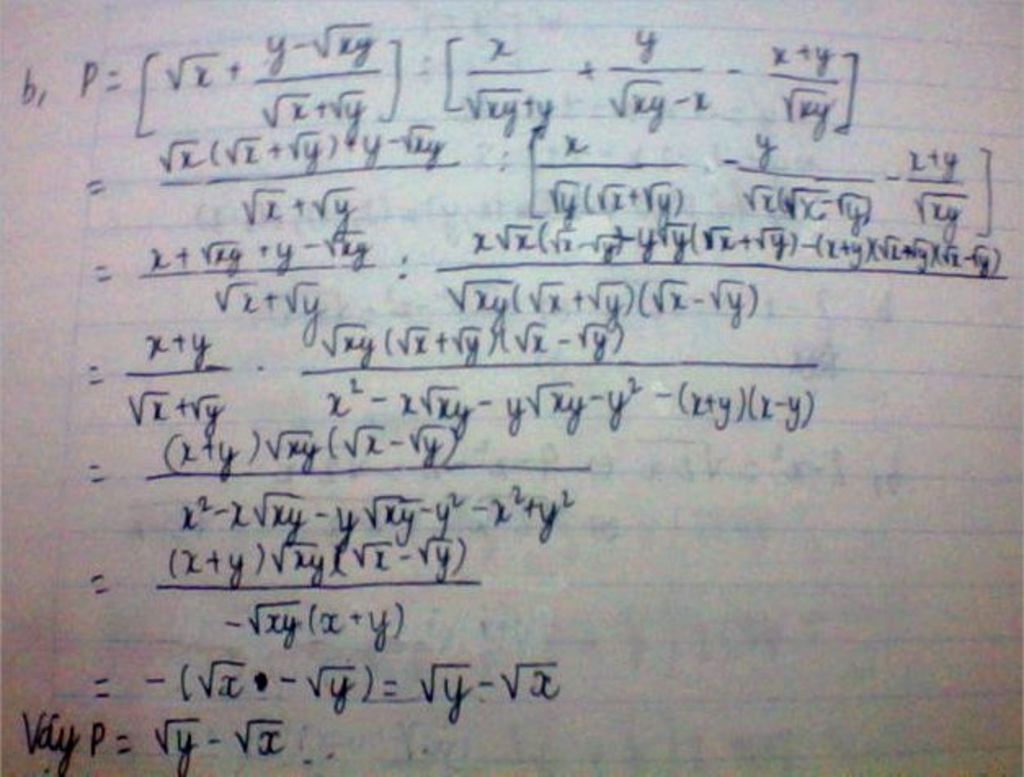 b, P = [√x + (y - √xy)/(√x + √y)] : [x/(√xy + y) + y/(√xy - x) - (x + y)/√xy]
= (√x(√x + √y) + y - √xy)/(√x + √y) : [x/(√y(√x + √y)) - y/(√x(√x - √y)) - (x + y)/√xy]
= (x + √xy + y - √xy)/(√x + √y) : (x√x(√x - √y) - y√y(√x + √y) - (x + y)(√x + √y)(√x - √y))/(√xy(√x + √y)(√x - √y))
= (x + y)/(√x + √y) . (√xy(√x + √y)(√x - √y))/(x² - x√xy - y√xy - y² - (x + y)(x - y))
= ((x + y)√xy(√x - √y))/(x² - x√xy - y√xy - y² - x² + y²)
= ((x + y)√xy(√x - √y))/(-√xy(x + y))
= -(√x - √y) = √y - √x
Vậy P = √y - √x